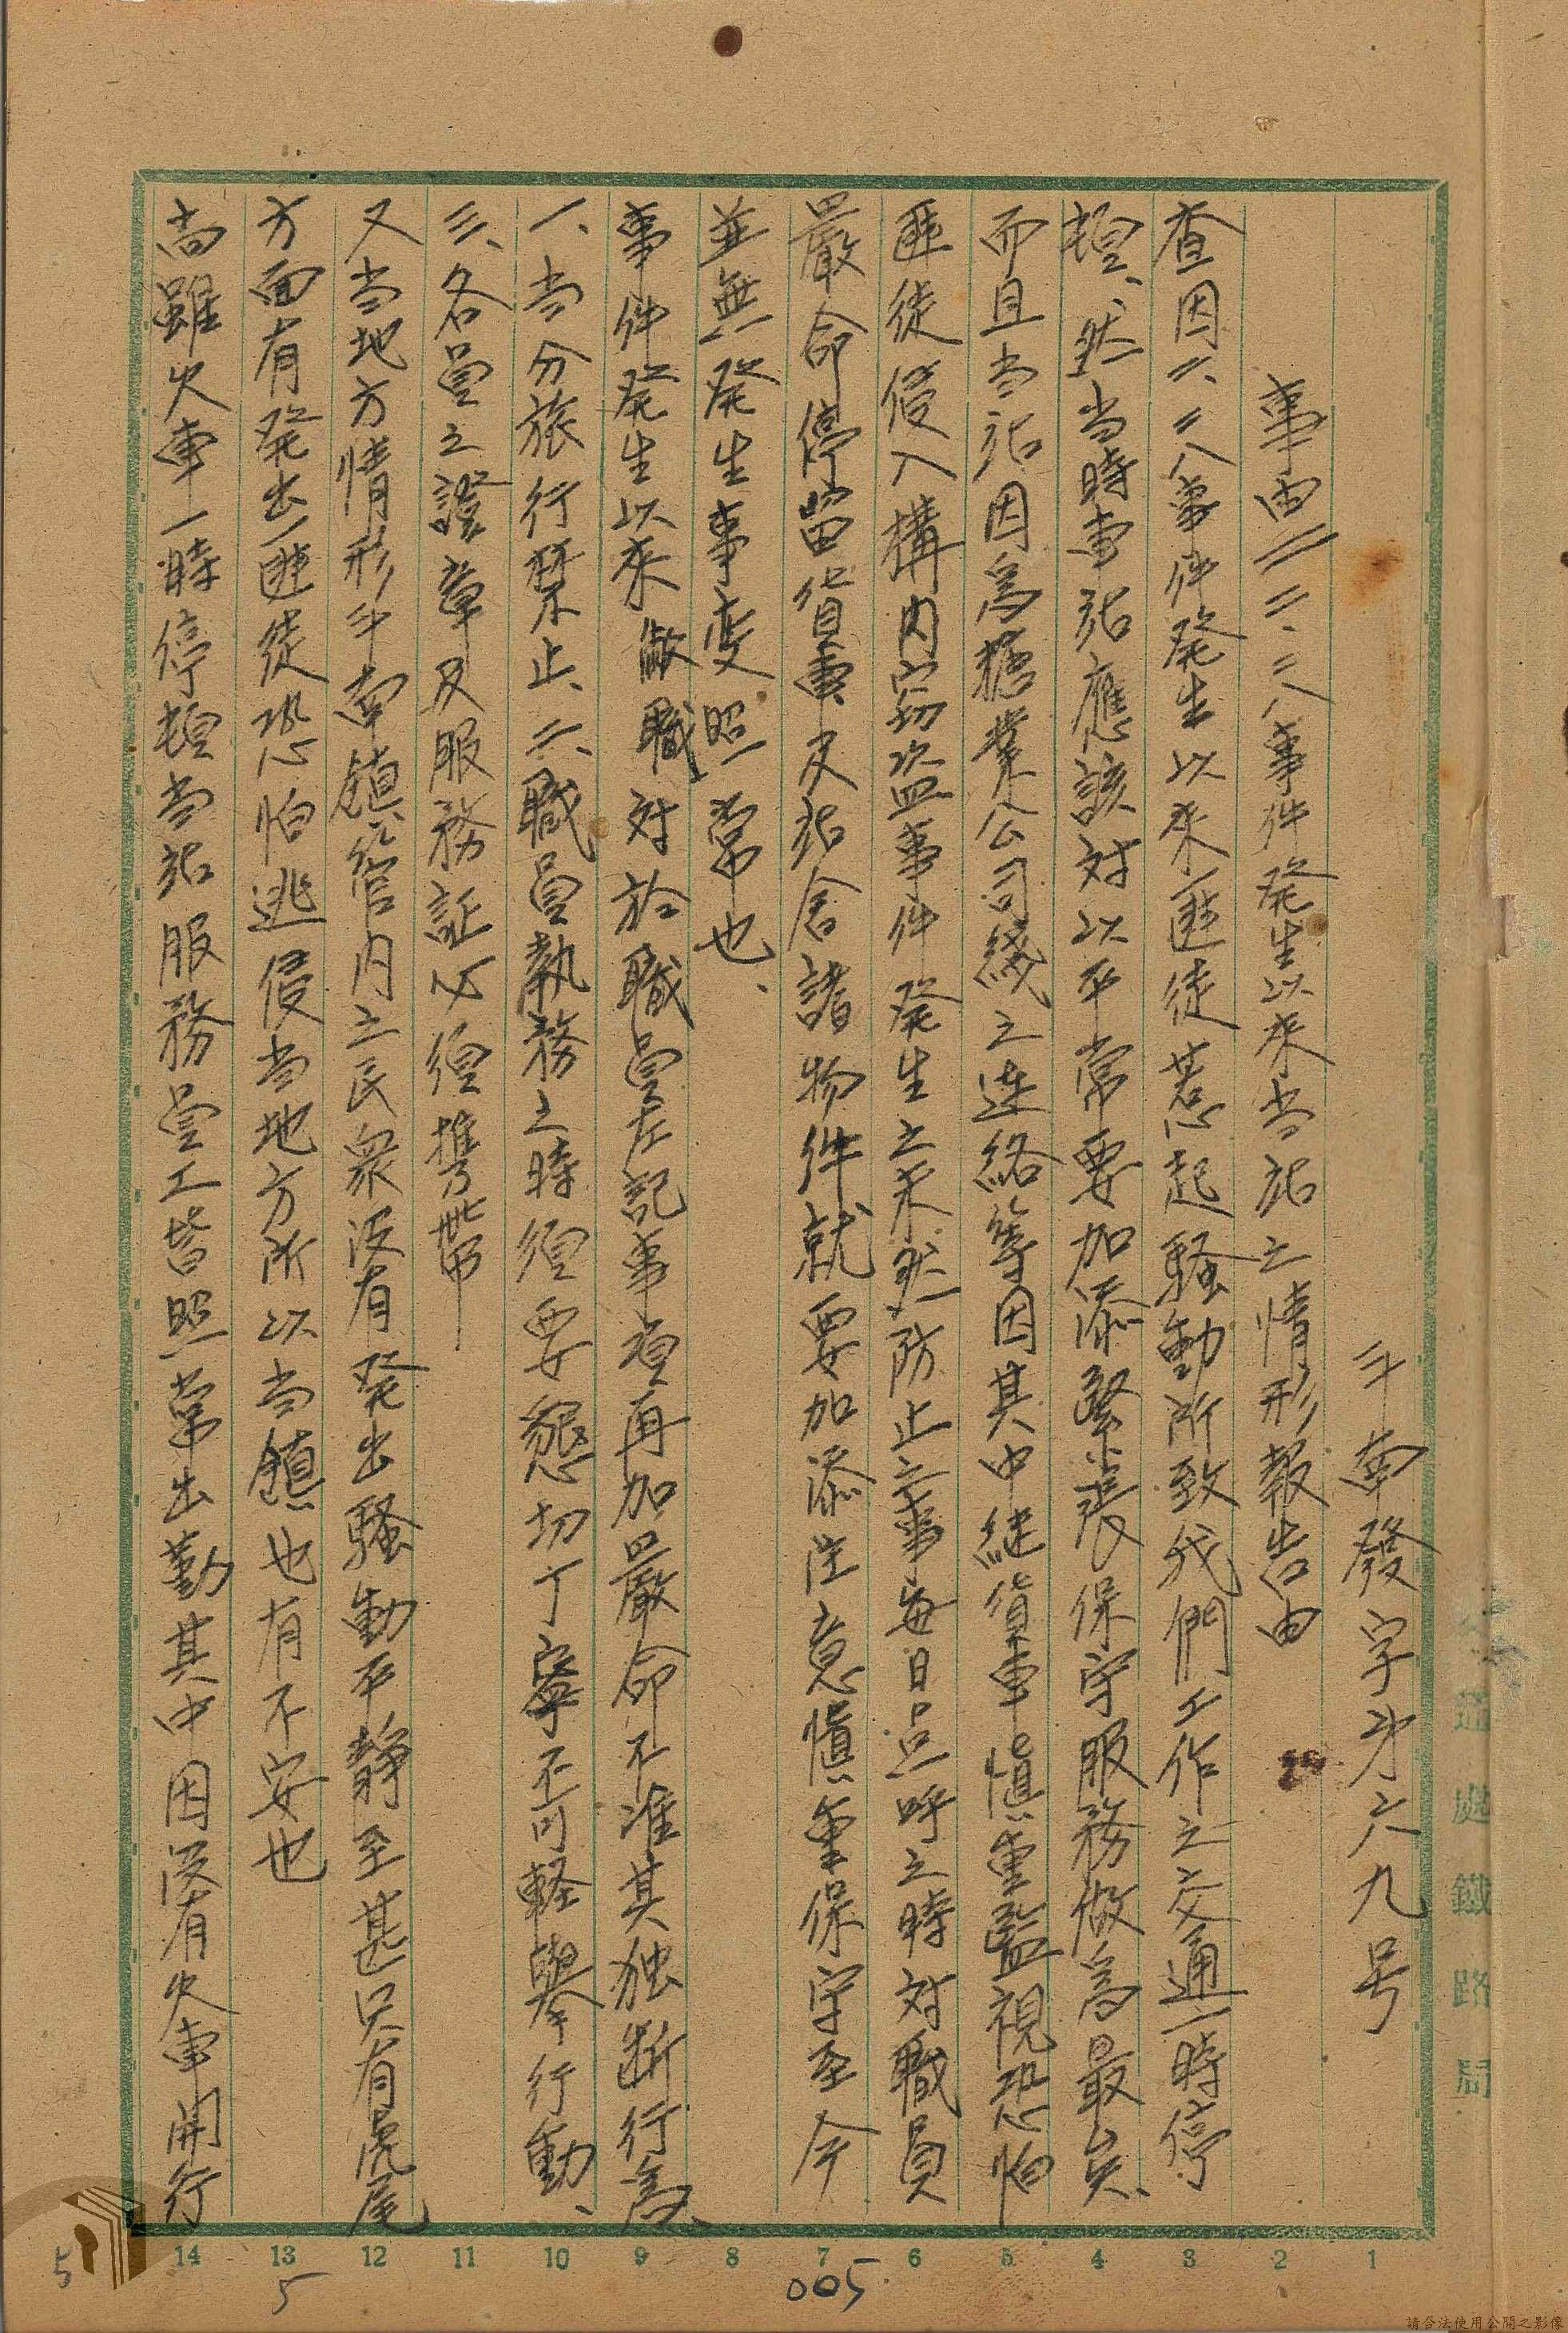 斗南發字才六九号
事由=二.二八事件発生以来当站之情形報告由
查因二、二八事件発生以来匪徒惹起騷動所致我們工作之交通一時停
頓、然当時車站應該対以平常要加添緊張保守服務做為最矣、
而且当站因為糖業公司綫之连絡等因其中継貨車慎重監視恐怕
匪徒侵入構内窃盗事件発生之未然防止之事每日点呼之時対職員
嚴命停留貨車及站舍諸物件就要加添注意慎重保守至今
並無発生事变照常也、
事件発生以来敝職対於職員左記事項再加嚴命不准其独断行為、
一、当分旅行禁止、二、職員執務之時須要懇切丁寧不可軽舉行動、
三、各員之證章及服務証必須携帶
又当地方情形斗南鎮管内之民衆没有発出騷動平静至甚只有虎尾
方面有発出匪徒恐怕逃侵当地方所以当鎮也有不安也
尚雖火車一時停頓当站服務員工皆照常出勤其中因没有火車開行
通處鐵路局
1 2 3 4 5 6 7 8 9 10 11 12 13 14
005
5
5
請合法使用公開之影像